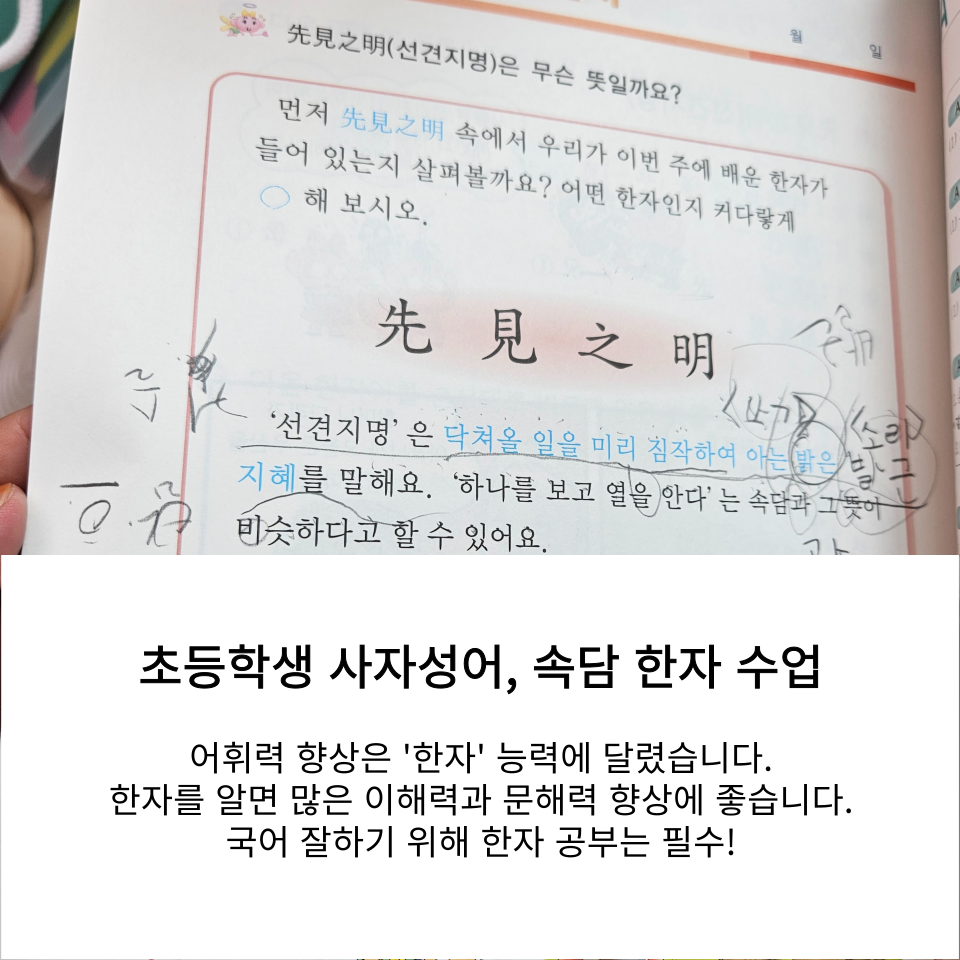 월 일
先見之明(선견지명)은 무슨 뜻일까요?
먼저 先見之明 속에서 우리가 이번 주에 배운 한자가
들어 있는지 살펴볼까요? 어떤 한자인지 커다랗게
해 보시오.
先 見 之 明
<쓰기> <소리>
'선견지명' 은 닥쳐올 일을 미리 짐작하여 아는 밝은
발근
지혜를 말해요. '하나를 보고 열을 안다' 는 속담과 그 뜻이
비슷하다고 할 수 있어요.
초등학생 사자성어, 속담 한자 수업
어휘력 향상은 '한자' 능력에 달렸습니다.
한자를 알면 많은 이해력과 문해력 향상에 좋습니다.
국어 잘하기 위해 한자 공부는 필수!